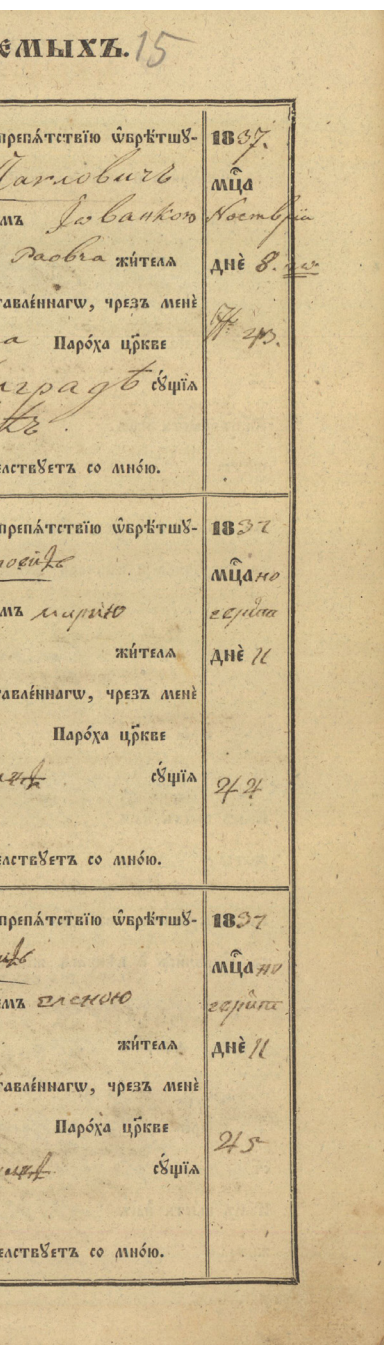 емыхъ. 15
препѧ́тствїю ѡ҆брѣ́тшꙋ- 1837.
Павловичъ мц҃а
мъ Јованкою Ноемвріа
Раовча жи́телѧ днѐ 8. го
тавле́ннагѡ, чрезъ менѐ
а Паро́ха цр҃кве № 43.
иградѣ сꙋ́щїѧ
елствꙋетъ со мно́ю.
препѧ́тствїю ѡ҆брѣ́тшꙋ- 1837
мц҃а но
мъ марію
жи́телѧ днѐ 11
тавле́ннагѡ, чрезъ менѐ
Паро́ха цр҃кве
сꙋ́щїѧ 44
елствꙋетъ со мно́ю.
препѧ́тствїю ѡ҆брѣ́тшꙋ- 1837
мц҃а но
мъ еленою
жи́телѧ днѐ 11
тавле́ннагѡ, чрезъ менѐ
Паро́ха цр҃кве 45
сꙋ́щїѧ
елствꙋетъ со мно́ю.